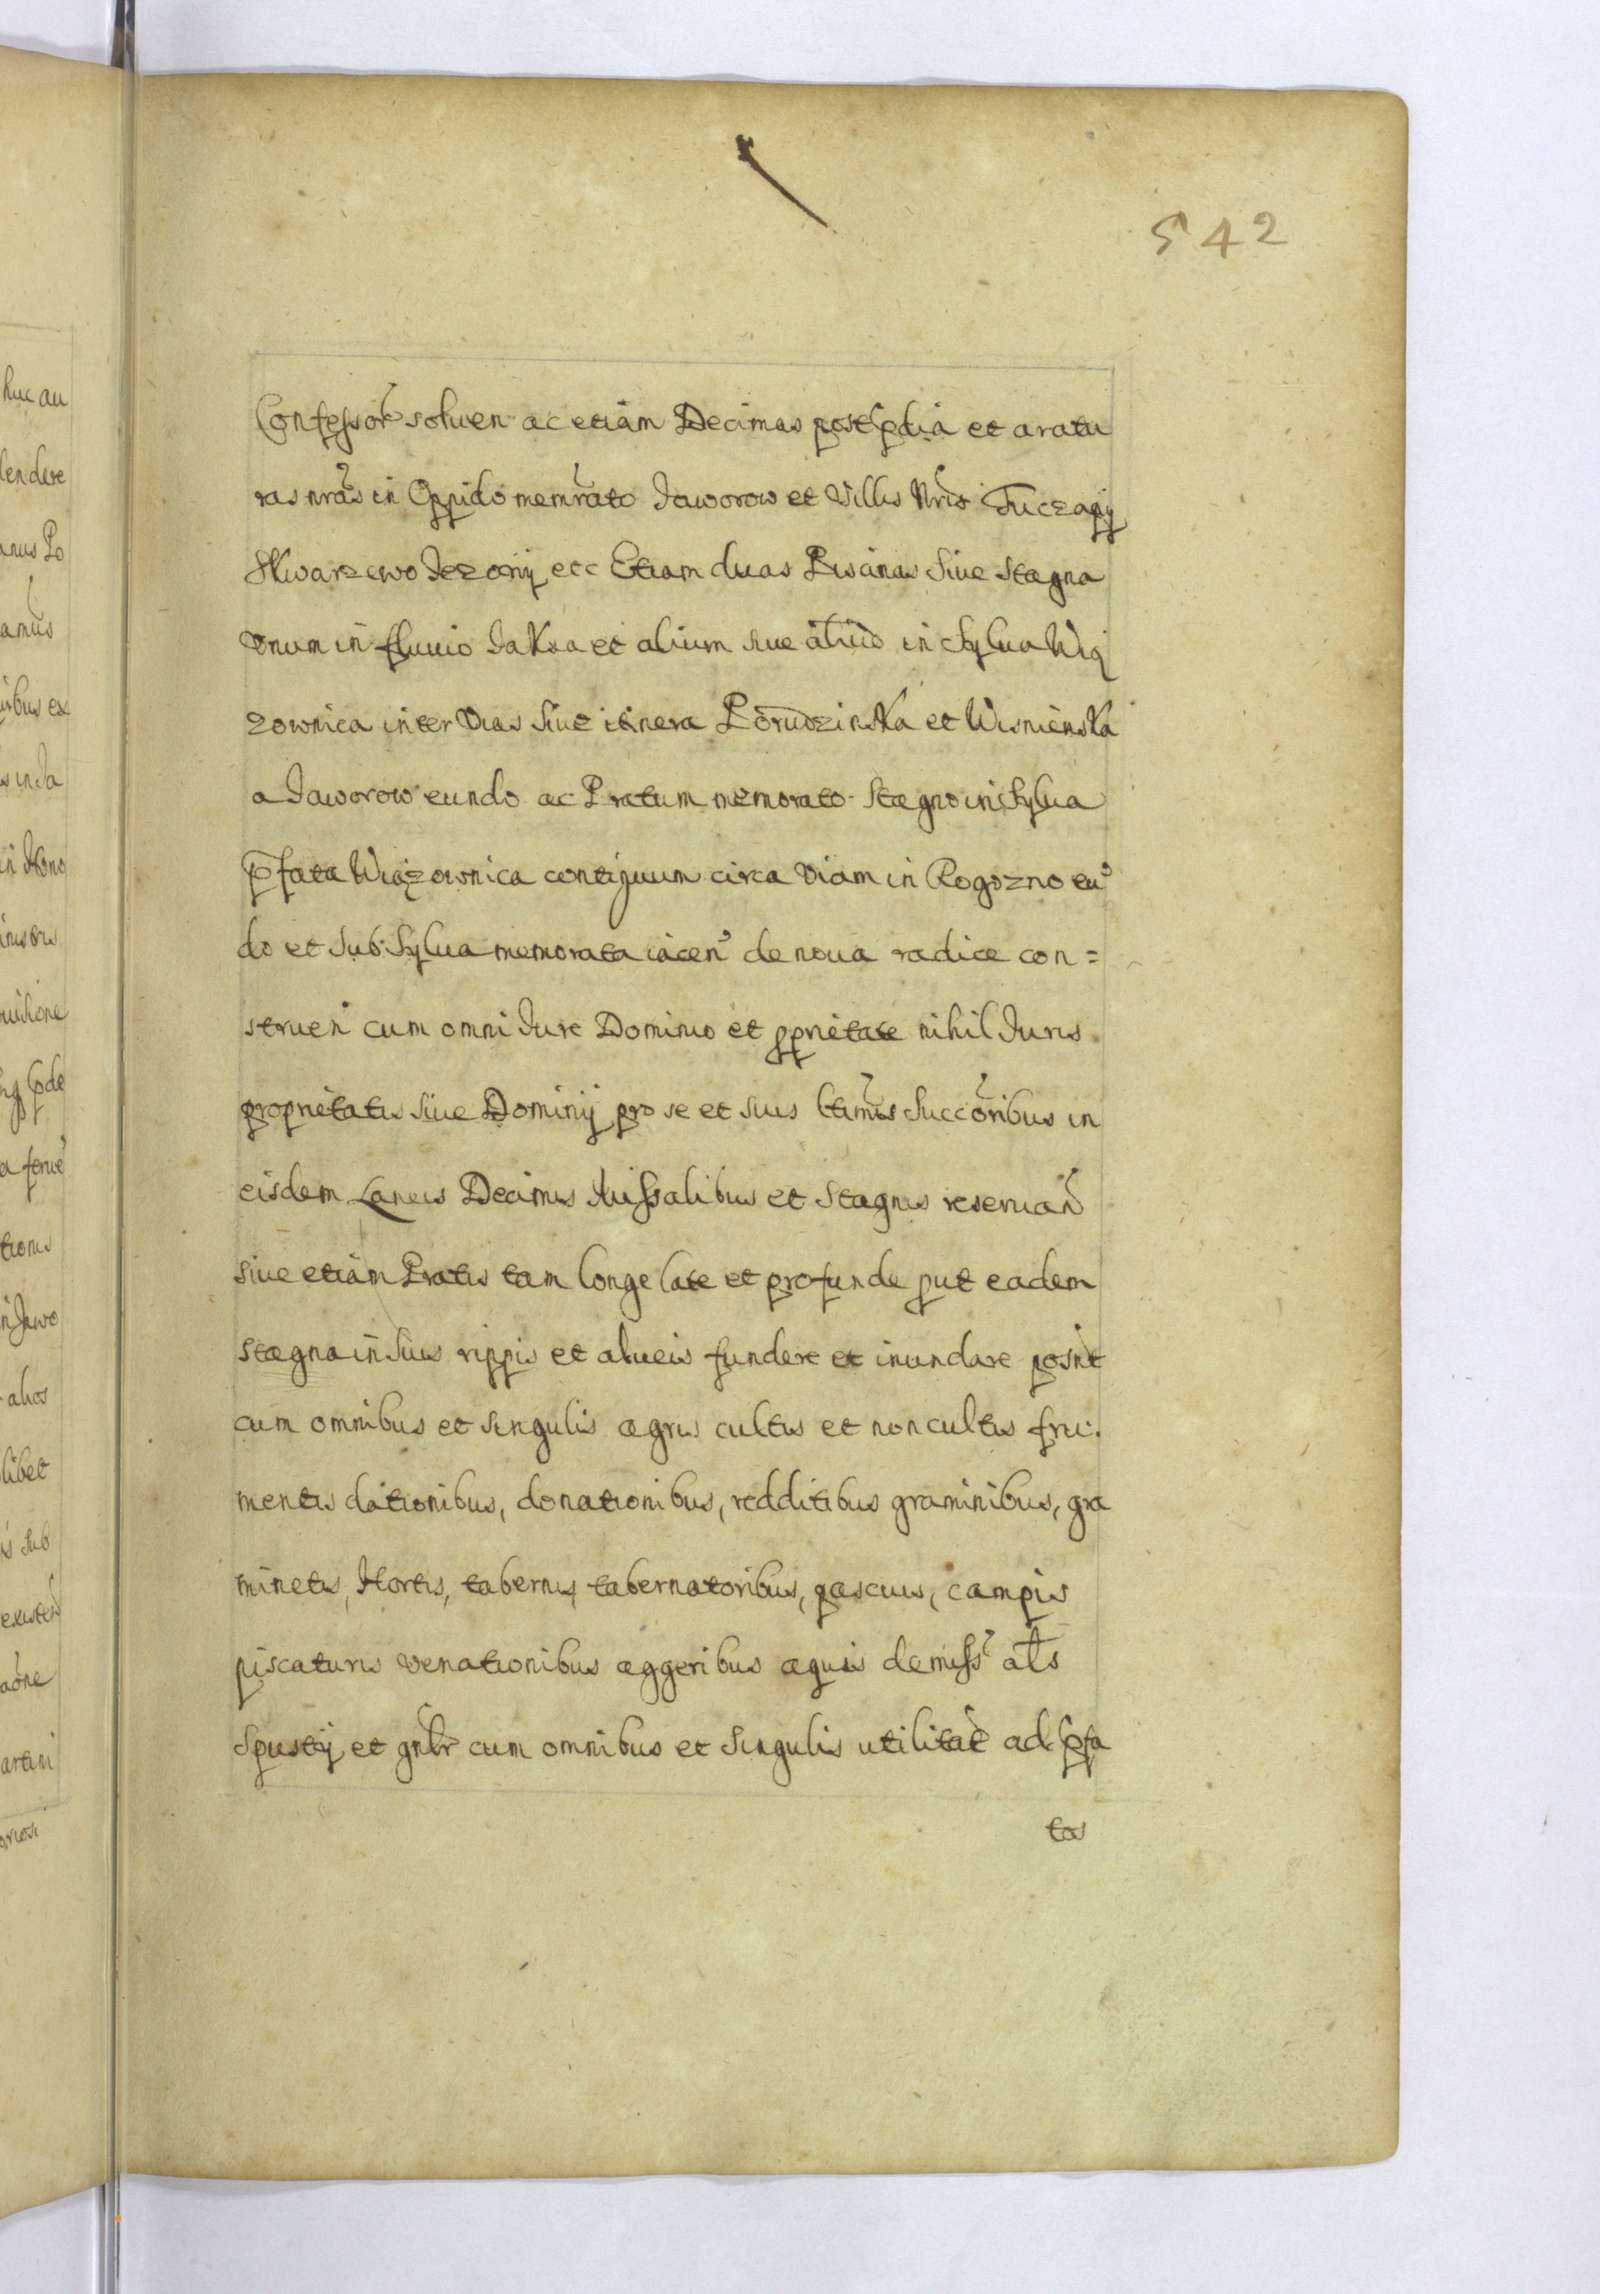 542
Confessor solven ac etiam Decimas post pdia et aratu
ras nras in Oppido memrato Jaworow et Villis Nris Tuczapij
Skwarzewo Jezonij etc Etiam duas Piscinas siue stagna
Vnum in fluuio Jaksa et alium siue aliud in Sylua Wią
zownica inter Vias siue itinera Porudzinska et Wisnienska
a Jaworow eundo ac Pratum memorato stagno in Sylua
pfata Wiązownica contiguum circa Viam in Rogozno eu
do et sub Sylua memorata iacen de noua radice con=
struen cum omni Jure Dominio et pprietate nihil Juris
proprietatis siue Dominij pro se et suis ltimis Succoribus in
eisdem Laneis Decimis Missalibus et Stagnis reseruan
siue etiam Pratis tam longe late et profunde put eadem
stagna in suis rippis et alueis fundere et inundare posnt
cum omnibus et singulis agris cultis et non cultis fru:
mentis dationibus, donationibus, redditibus graminibus, gra
minetis, Hortis, tabernis, tabernatoribus, pascuis, campis
piscaturis venationibus aggeribus aquis demiss als
Spusty et gnlr cum omnibus et singulis utilitat ad pfa
tas
huc au
lendere
anus Po
amus
ibus ex
s in Ja
uisione
tionis
n Jawo
alios
libet
is sub
artini